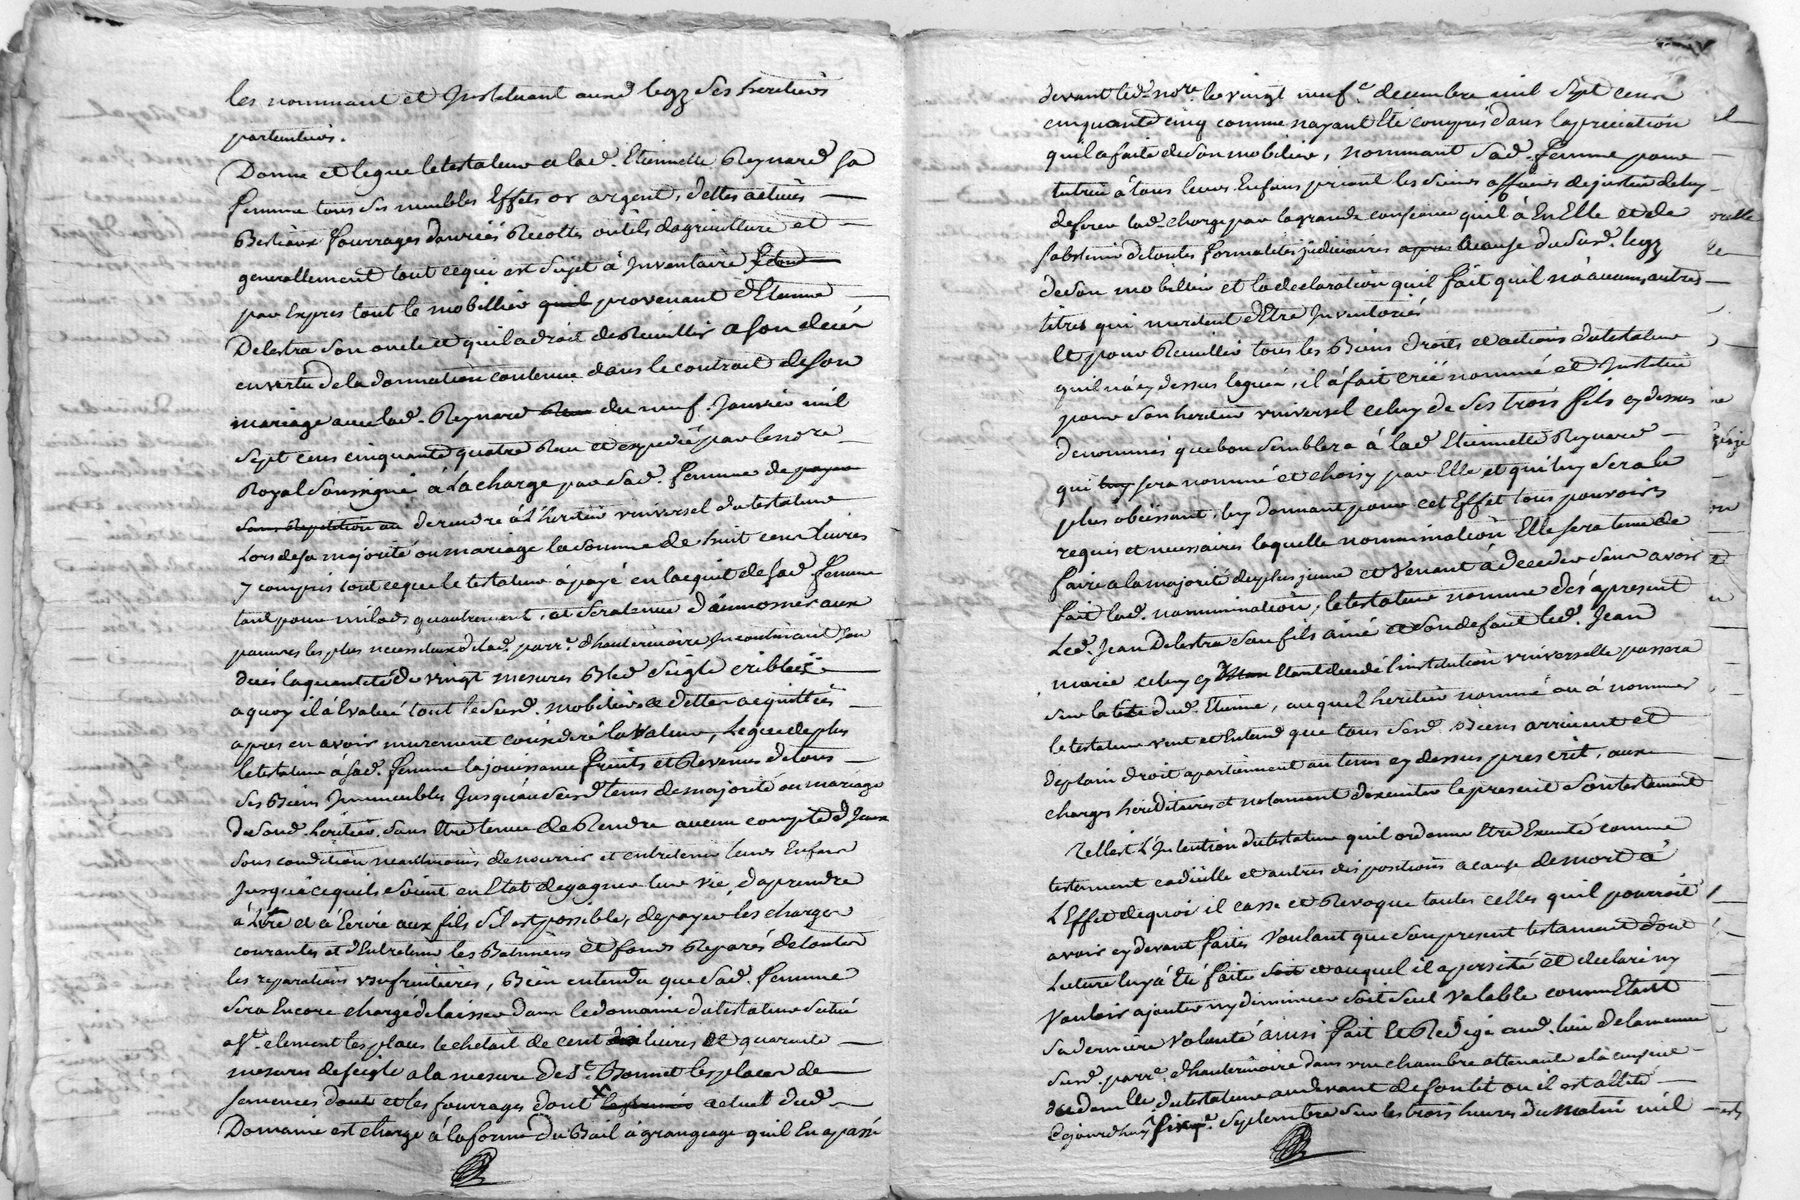 les nommant et Instituant aud legz ses heritiers
particuliers.
Donne et legue le testateur a lad. Etiennette Reynard sa
femme tous ses meubles Effets or argent, dettes actives
Bestiaux fourrages danrées Recoltes outils dagriculture et
generallement tout cequi est sujet à Inventaire
par Expres tout le mobillier quil provenant dEtienne
Delestra son oncle et quil a droit de Recuillir a son deces
en vertu de la donnation contenue dans le contrat deson
mariage avec lad. Reynard du neuf Janvier mil
sept cens cinquante quatre Recu et expedié par le no.re
Royal soussigné à La charge par sad. femme de payer
sans Repetition au de rendre à Lheritier universel du testateur
Lors de sa majorité ou mariage la somme de huit cens livres
y compris tout ceque le testateur a payé en lacquit de sad. femme
tant pour milods quautrement, et sera tenue daumosner aux
pauvres les plus necessiteux de lad. parr.e dhauterivoire Incontinant son
deces la quantité de vingt mesures Bled seigle criblées
aquoy il à Evalué tout le susd. mobilier & dettes acquittées
apres en avoir murement considéré la valeur, Legue de plus
le testateur à sad. femme la jouissance fruits et Revenus de tous
ses Biens Immeubles Jusquau susd. tems de majorité ou mariage
de sond. héritier, sans Etre tenue de Rendre aucun compte dJceux
sous condition neanmoins de nourrir et entretenir leurs Enfans
Jusqua cequils soient en Etat de gagner leur vie, daprendre
à Lire et à Ecrire aux fils sil est possible, de payer les charges
courantes et dEntretenir les Batimens et fonds Reparés de toutes
les reparations usufruitieres, Bien entendu que sad. femme
sera Encore chargé de laisser dans le domaine du testateur situé
a St. clement les places le chetail de cent livres et quarante
mesures de seigle a la mesure de St. Bonnet les places de
semences dont et les fourrages dont actuel dud.
Domaine est chargé à la forme du Bail à grangeage quil En a passé
devant led. no.re le vingt neuf.e decembre mil sept cens
cinquante cinq comme nayant Eté compris dans lapreciation
quil a faite de son mobilier, nommant sad. femme pour
tutrice à tous leurs Enfans priant les sieurs officiers de justice de luy
deferer lad. charge par la grande confiance quil à En Elle et de
sabstenir de toutes formalités judiciaires a cause du susd. legz
de son mobilier et la declaration quil fait quil na aucuns autres
titres qui meritent dEtre Inventoriés
Et pour Recuillir tous les Biens Droits et actions du testateur
quil na cy dessus legués, il à fait créé nommé et Institué
pour son heritier universel celuy de ses trois fils cy dessus
denommés que bon semblera à lad. Etiennette Reynard
qui luy sera nommé et choisy par Elle et qui luy sera le
plus obeissant, luy donnant pour cet Effet tous pouvoirs
requis et necessaires laquelle nommination Elle sera tenue de
faire a la majorité du plus jeune et venant à deceder sans avoir
fait lad. nommination, le testateur nomme dès àpresent
Led. Jean Delestra son fils ainé et son defaut led. Jean
marie celuy cy Etant decedé linstitution universelle passera
sur la tete dud. Etienne, auquel heritier nommé ou à nommer
le testateur veut et Entend que tous sesd. Biens arrivent et
deplain droit apartiennent au tems cy dessus prescrit, aux
charges héreditaires et notament dexecuter le present son testament
Telle est L'Intention du testateur quil ordonne Etre Executé comme
testament codicille et autres dispositions a cause de mort à
L'Effet de quoi il casse et Revoque toutes celles quil pourroit
avoir cy devant faites voulant que son present testament dont
Lecture luy à Eté faite et auquel il a persisté et declaré ny
vouloir ajouter ny diminuer soit seul valable comme Etant
sa derniere volonté ainsi fait et Redigé aud. lieu de
susd. parr.e dhauterivoire dans une chambre attenant a la cuisine
du dom.lle du testateur audevant de son lit ou il est allité
cejourdhuy septembre sur les trois heures du matin mil